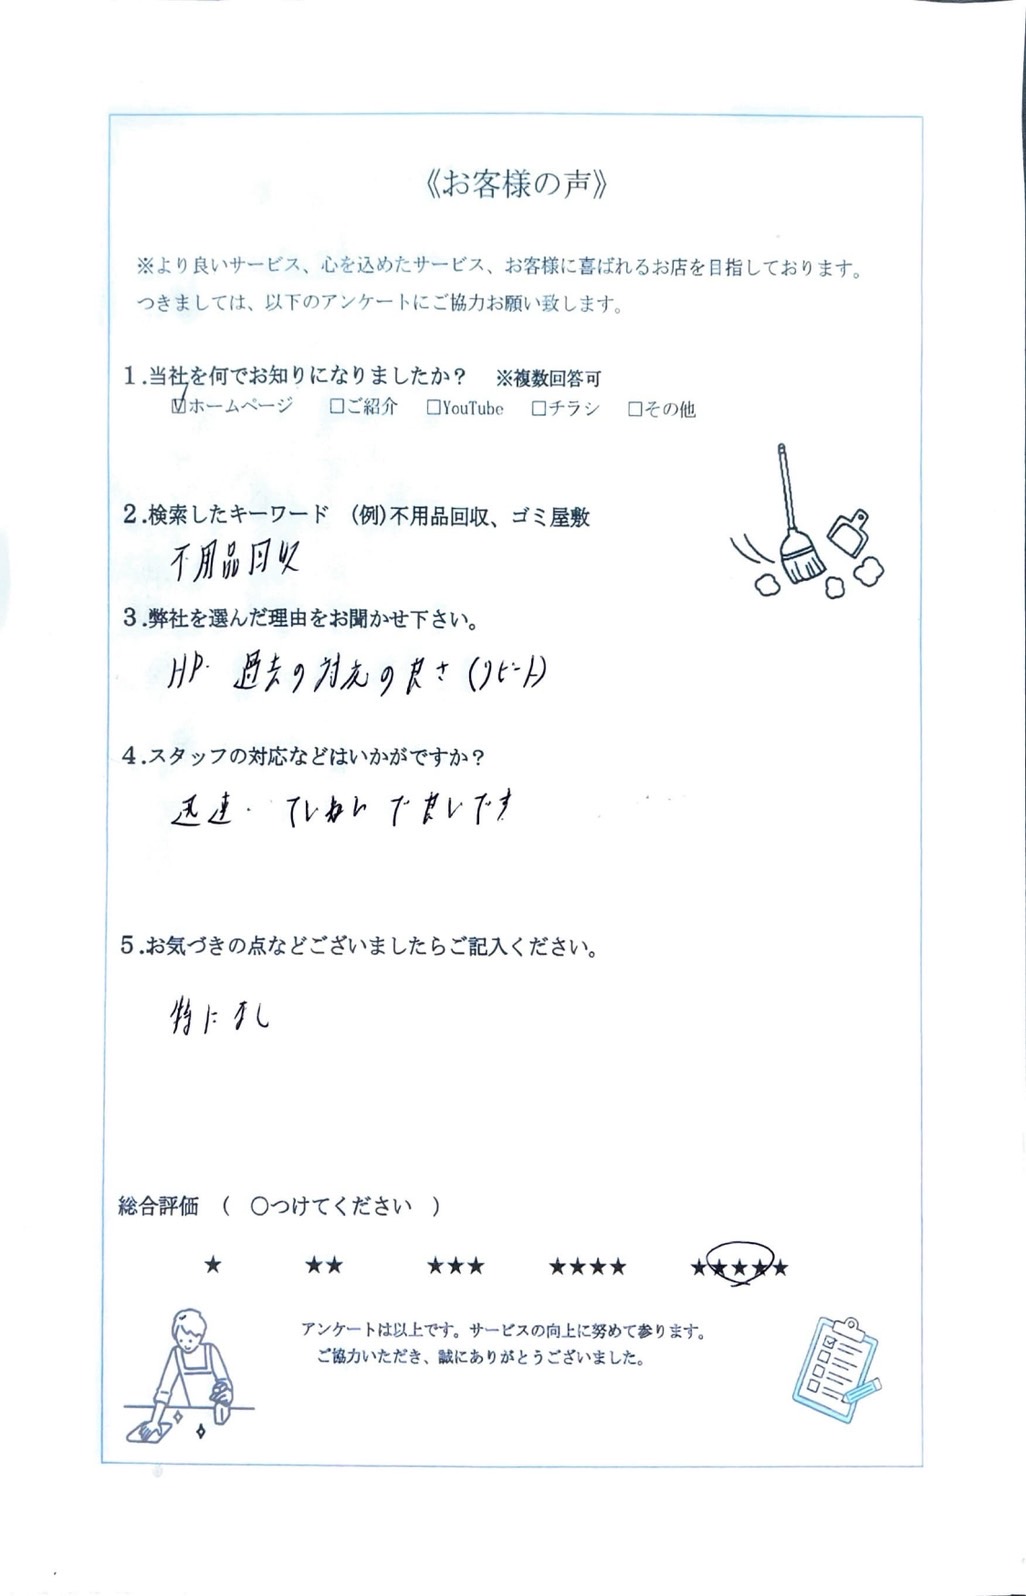 《お客様の声》
※より良いサービス、心を込めたサービス、お客様に喜ばれるお店を目指しております。
つきましては、以下のアンケートにご協力お願い致します。
1.当社を何でお知りになりましたか？　※複数回答可
☑ホームページ　□ご紹介　□YouTube　□チラシ　□その他
2.検索したキーワード　(例)不用品回収、ゴミ屋敷
不用品回収
3.弊社を選んだ理由をお聞かせ下さい。
HP. 過去の対応の良さ(リピート)
4.スタッフの対応などはいかがですか？
迅速・ていねいで良いです
5.お気づきの点などございましたらご記入ください。
特になし
総合評価　(　○つけてください　)
★　★★　★★★　★★★★　★★★★★
アンケートは以上です。サービスの向上に努めて参ります。
ご協力いただき、誠にありがとうございました。